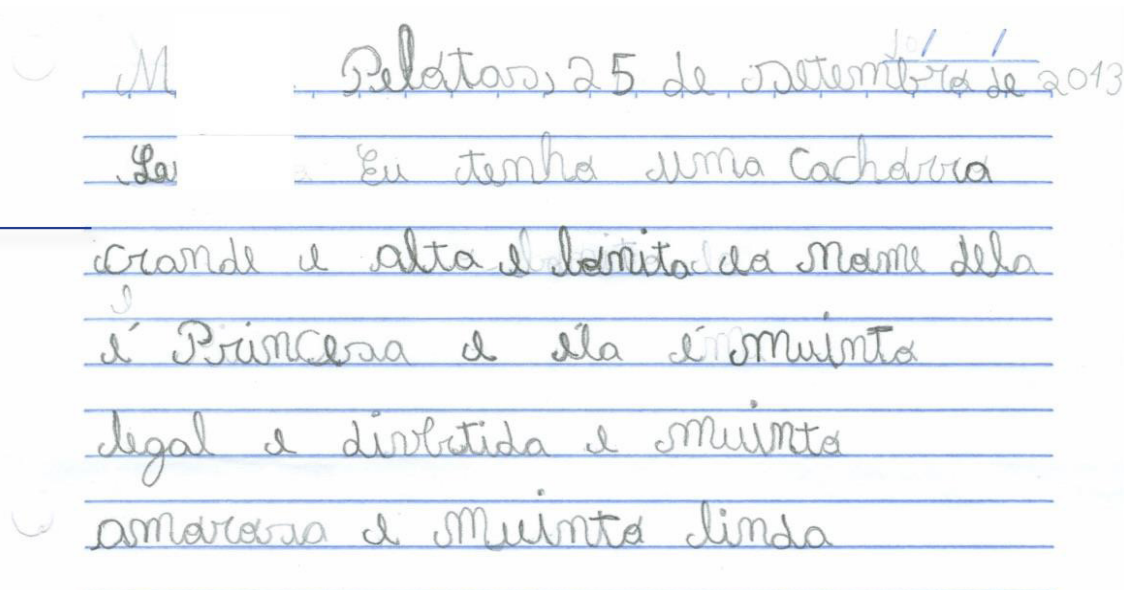 M Pelotas, 25 de setembro de 2013
La Eu tenho uma Cachorra
crande e alta e bonita eo nome dela
é Princesa e éla é muinto
legal e divertida e muinto
amorosa e muinto linda